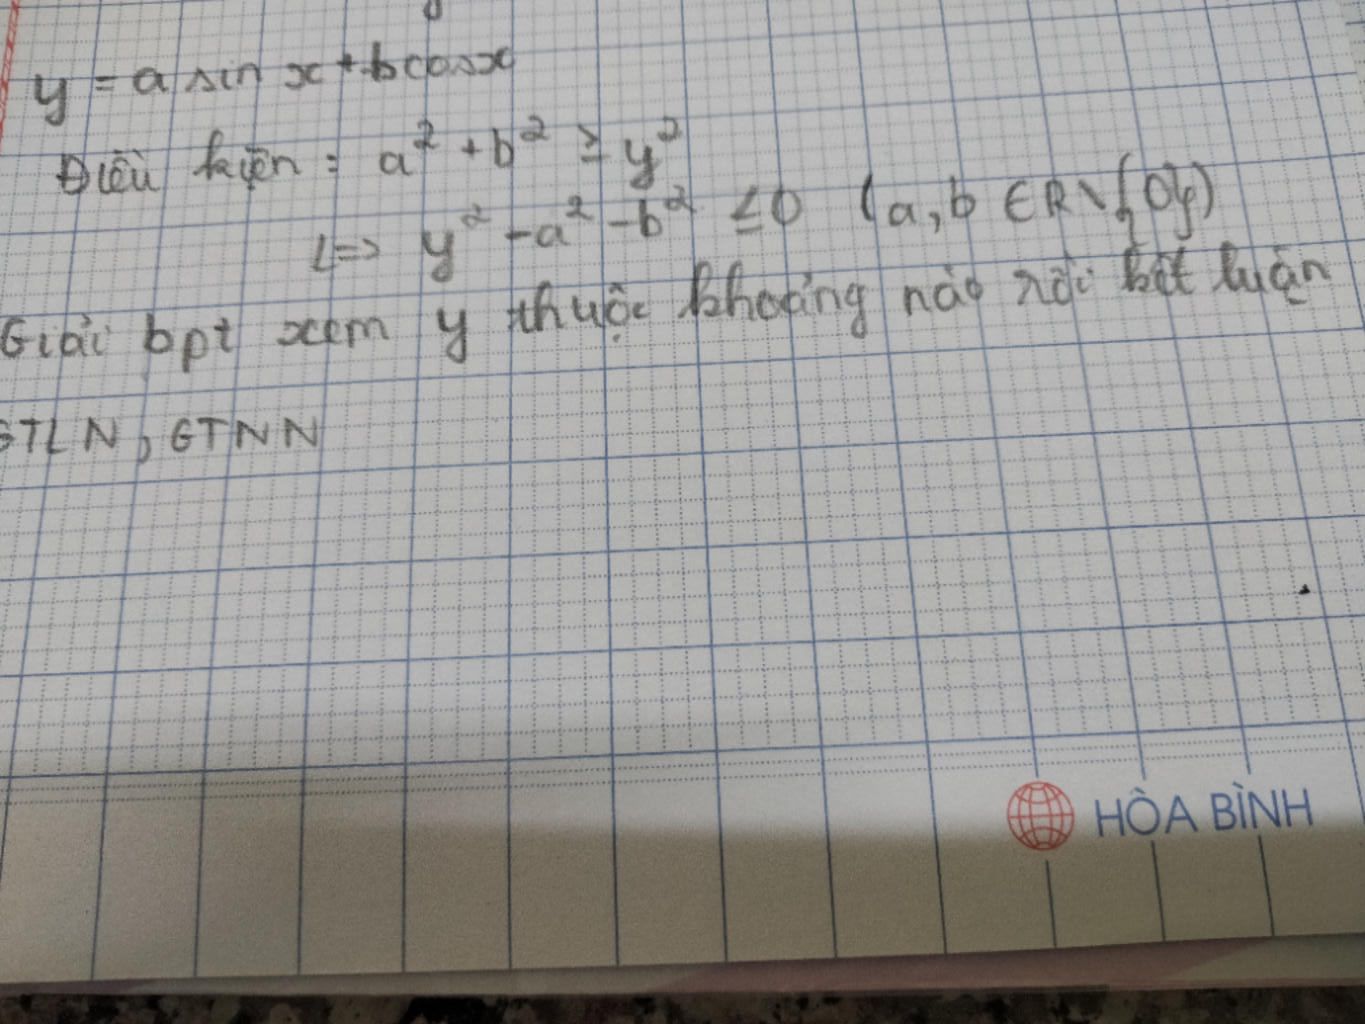 y = a sin x + b cos x
Điều kiện: a² + b² ≥ y²
<=> y² - a² - b² ≤ 0 (a, b ∈ R \ {0})
Giải bpt xem y thuộc khoảng nào rồi kết luận
GTLN, GTNN
HÒA BÌNH